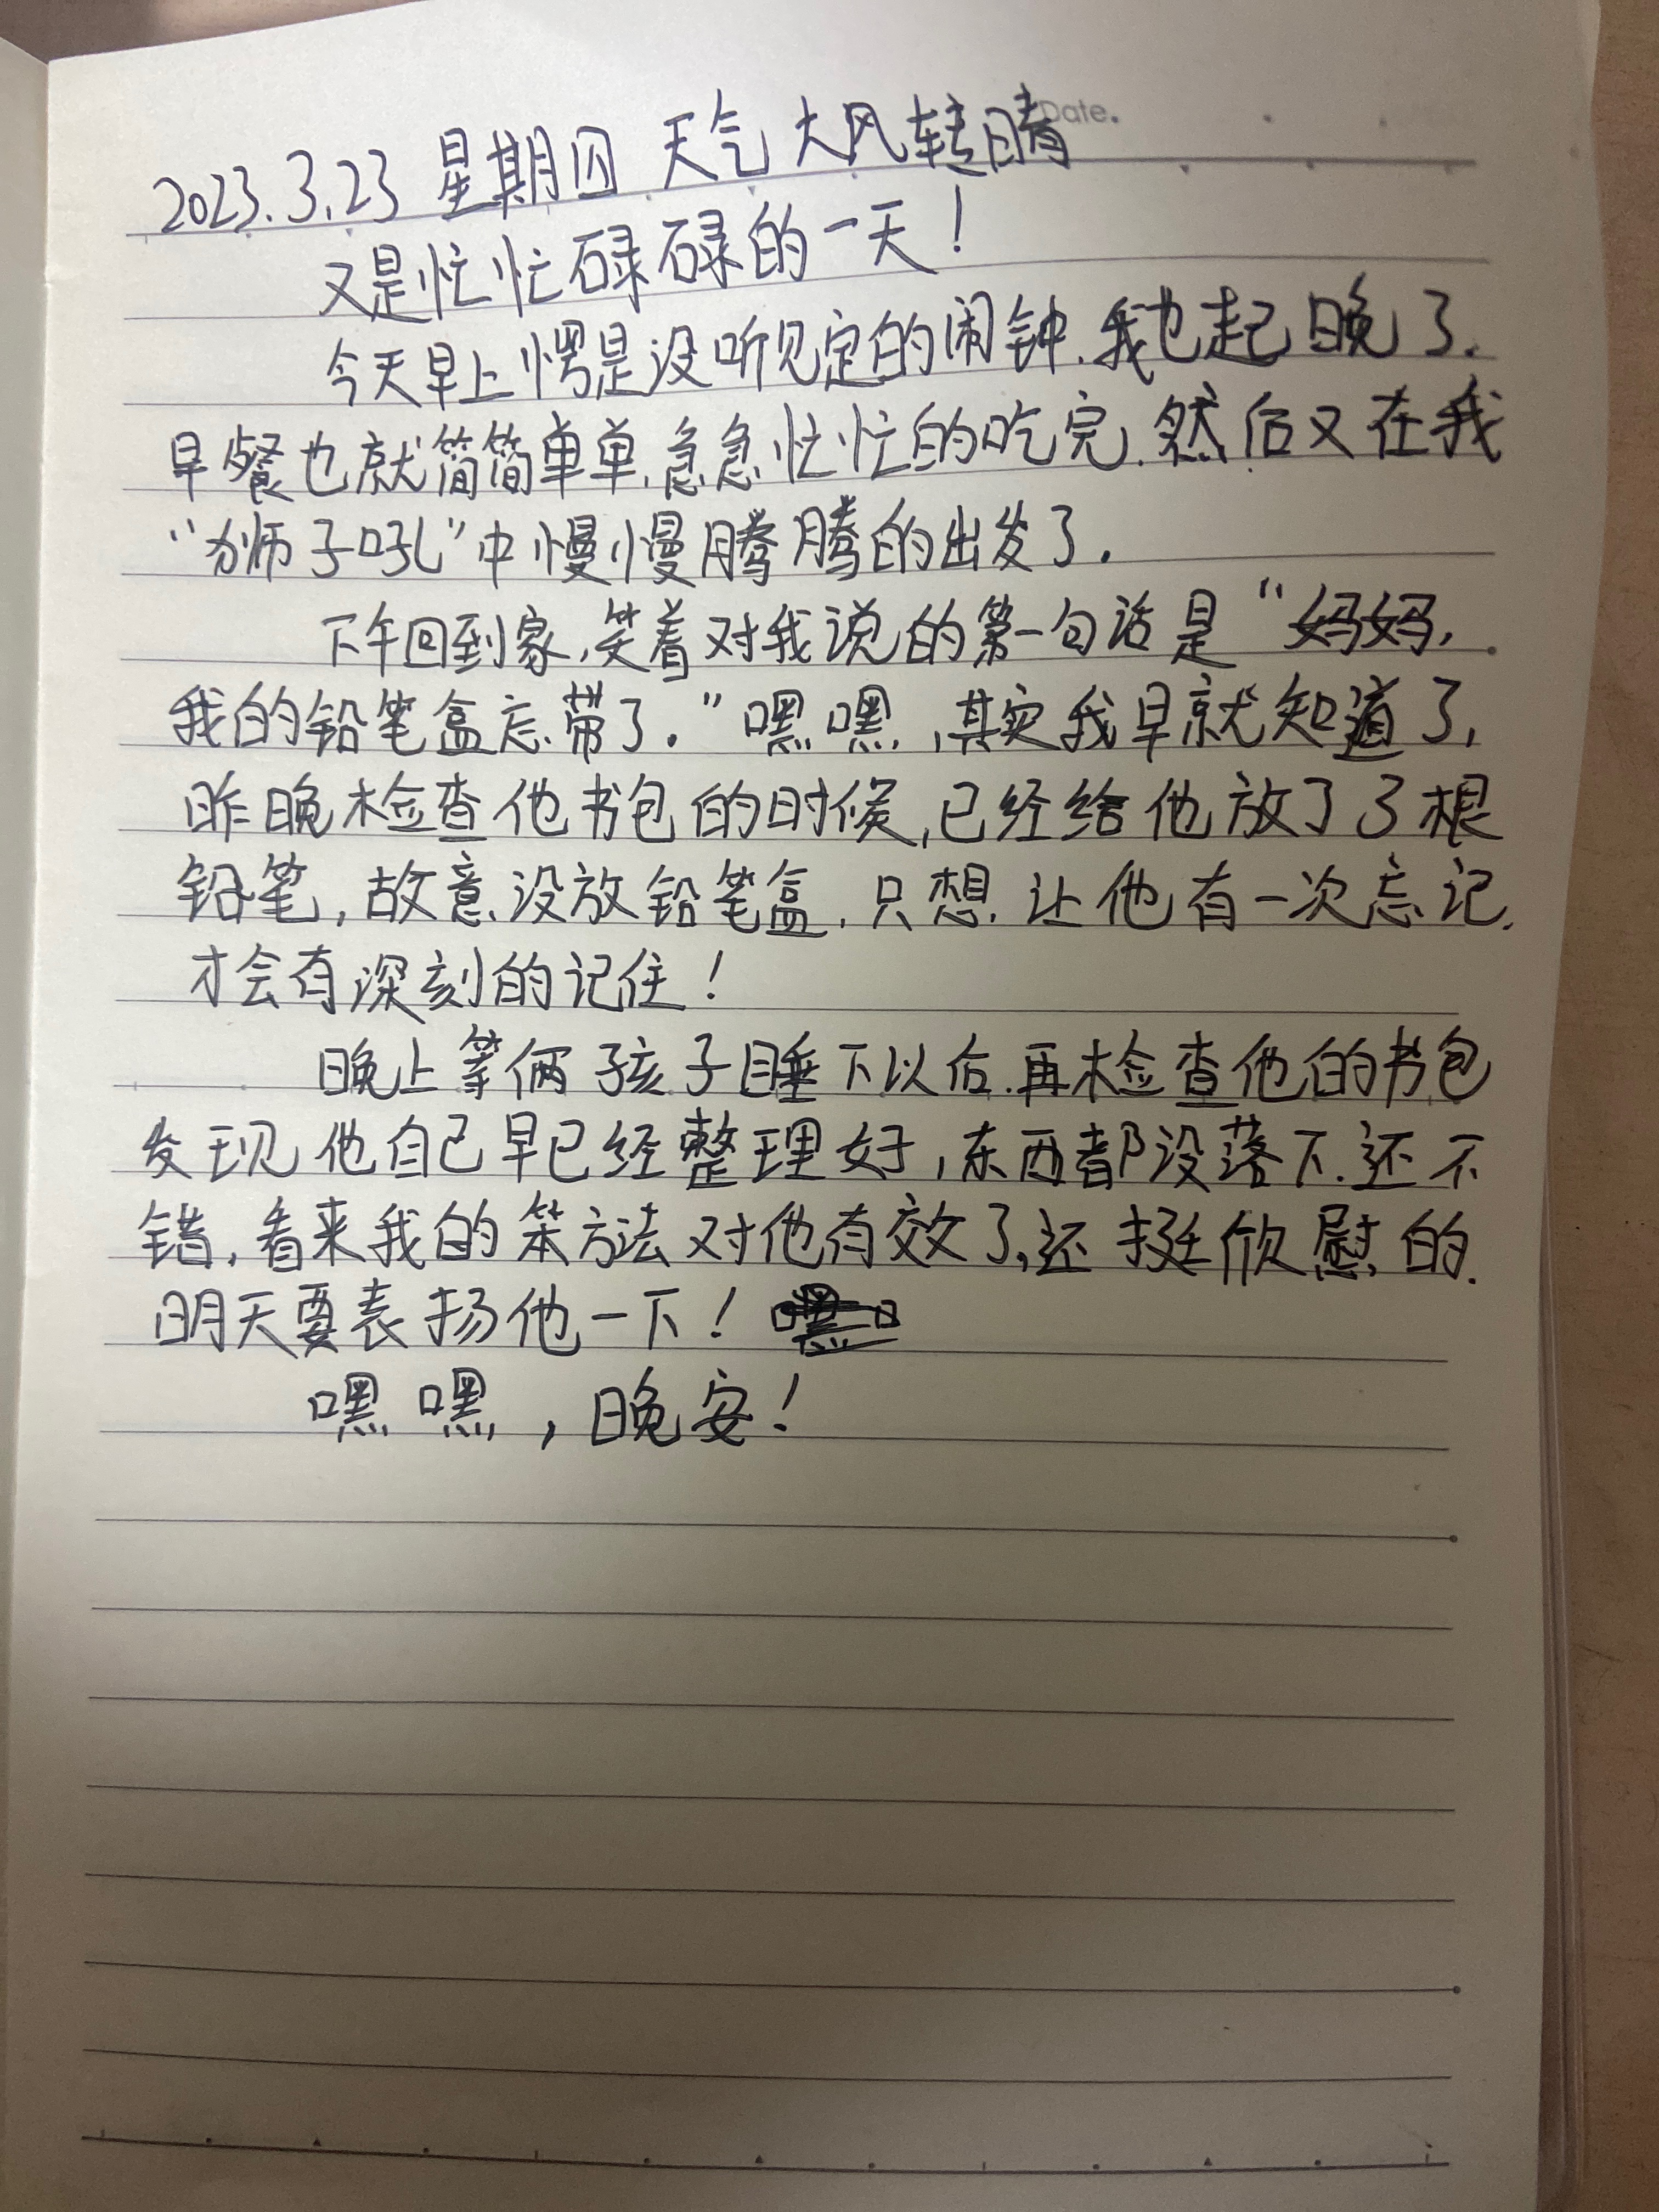 Date.
2023.3.23 星期四 天气 大风转晴
又是忙忙碌碌的一天！
今天早上愣是没听见定的闹钟.我也起晚了.
早餐也就简简单单.急急忙忙的吃完.然后又在我
“狮子吼”中慢慢腾腾的出发了.
下午回到家,笑着对我说的第一句话是“妈妈,
我的铅笔盒忘带了.”嘿嘿,其实我早就知道了,
昨晚检查他书包的时候,已经给他放了3根
铅笔,故意没放铅笔盒.只想让他有一次忘记.
才会有深刻的记住！
晚上等俩孩子睡下以后.再检查他的书包
发现他自己早已经整理好,东西都没落下.还不
错,看来我的笨方法对他有效了,还挺欣慰的.
明天要表扬他一下！
嘿嘿,晚安！